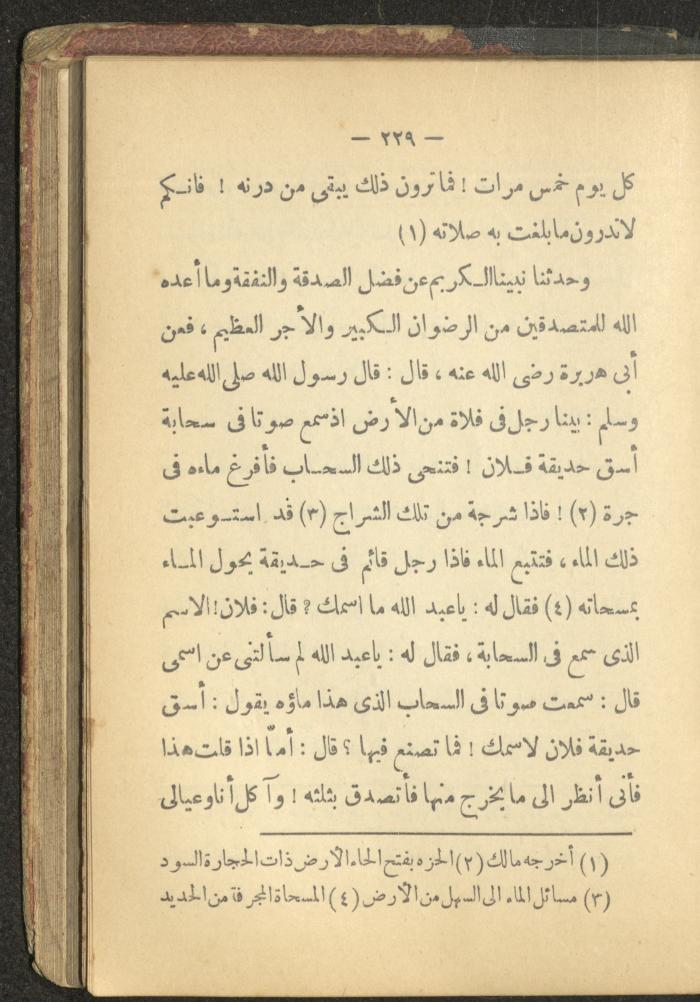 — ٢٢٩ —
كل يوم خمس مرات ! فما ترون ذلك يبقى من درنه ! فانكم
لاتدرون ما بلغت به صلاته (١)
وحدثنا نبينا الكريم عن فضل الصدقة والنفقة وما أعده
الله للمتصدقين من الرضوان الكبير والأجر العظيم ، فعن
أبى هريرة رضى الله عنه ، قال : قال رسول الله صلى الله عليه
وسلم : بينا رجل فى فلاة من الأرض اذ سمع صوتا فى سحابة
أسق حديقة فلان ! فتنحى ذلك السحاب فأفرغ ماءه فى
جرة (٢) ! فاذا شرجة من تلك الشراج (٣) قد استوعبت
ذلك الماء ، فتتبع الماء فاذا رجل قائم فى حديقة يحول الماء
بمسحاته (٤) فقال له : ياعبد الله ما اسمك ? قال : فلان ! الاسم
الذى سمع فى السحابة ، فقال له : ياعبد الله لم سألتنى عن اسمى
قال : سمعت صوتا فى السحاب الذى هذا ماؤه يقول : أسق
حديقة فلان لاسمك ! فما تصنع فيها ؟ قال : أمّا اذا قلت هذا
فأنى أنظر الى ما يخرج منها فأتصدق بثلثه ! وآكل أنا وعيالى
(١) أخرجه مالك (٢) الحزه بفتح الحاء الأرض ذات الحجارة السود
(٣) مسائل الماء الى السهل من الأرض (٤) المسحاة المجرفة من الحديد